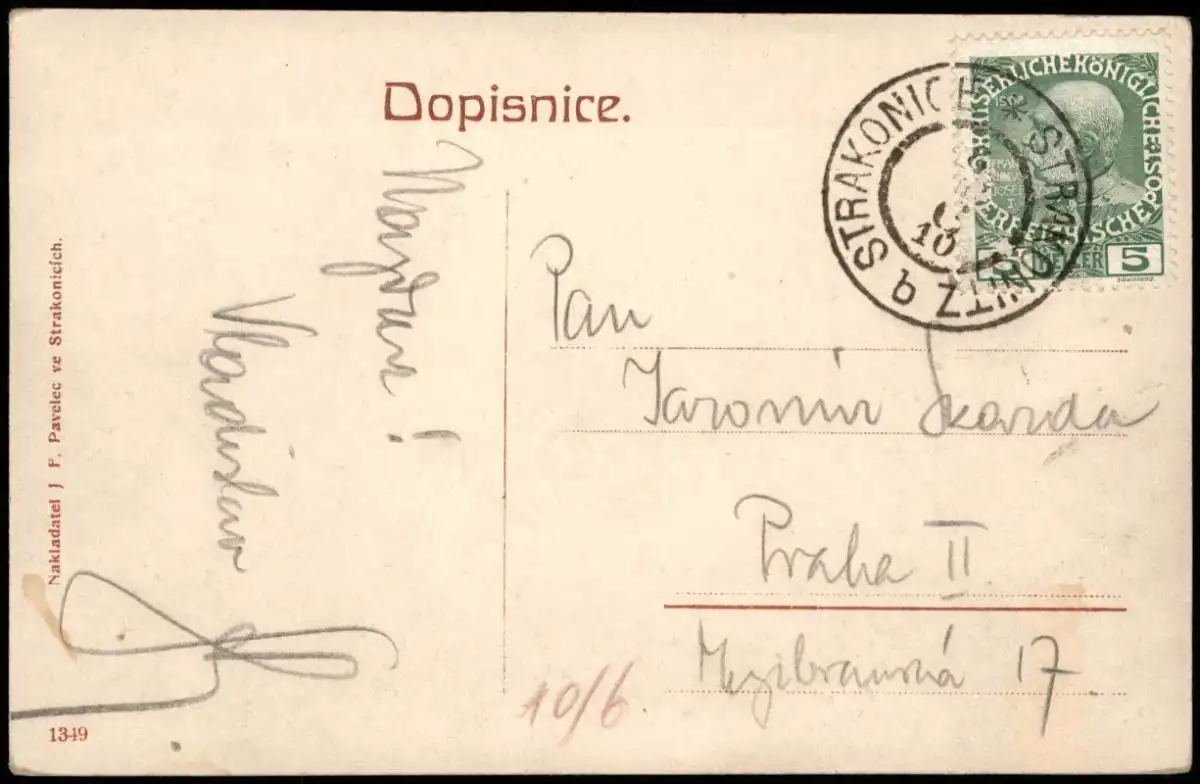 Dopisnice.
Nazdar!
Vladislav
Nakladatel J. F. Pavelec ve Strakonicích.
1349
10/6
Pan
Jaromír Skarda
Praha II.
Mezibranská 17.
STRAKONICE * STRAKONITZ b
10
KAISERLICHE KÖNIGLICHE
ÖSTERREICHISCHE POST
1908
5 HELLER 5